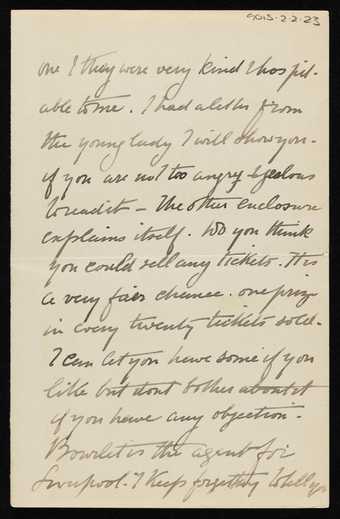 9015-2-2-23
one & they were very kind & hospit-
able to me. I had a letter from
the young lady I will show you -
if you are not too angry & jealous
to read it - The other enclosure
explains itself. Do you think
you could sell any tickets. It is
a very fair chance. one prize
in every twenty tickets sold.
I can let you have some if you
like but dont bother about it
if you have any objection.
Bowlet is the agent for
Liverpool. I keep forgetting to tell you